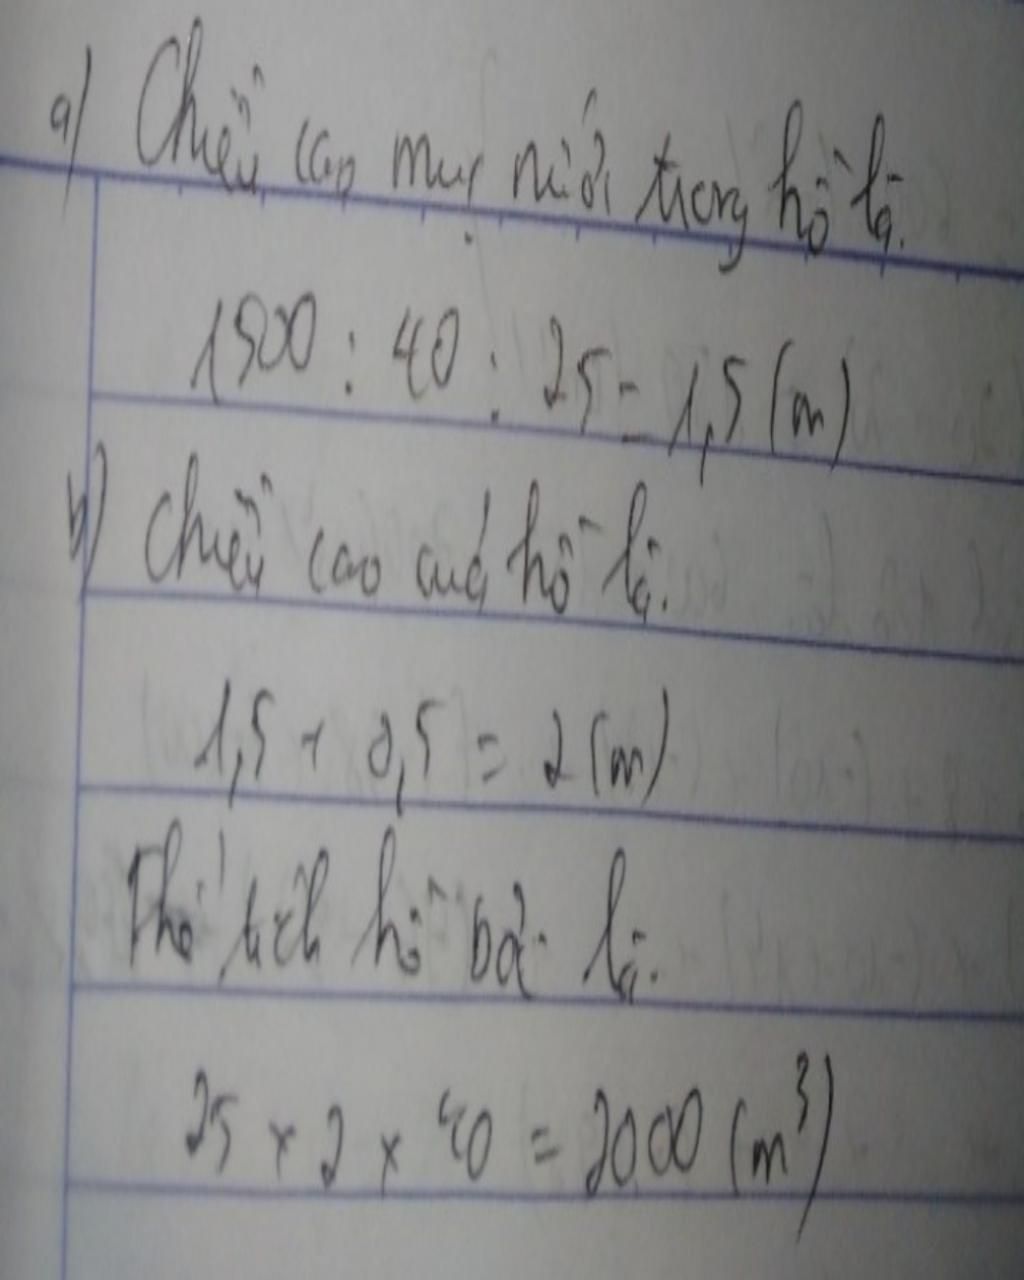 a) Chiều cao mực nước trong hồ là.
1500 : 40 : 25 = 1,5 (m)
b) Chiều cao của hồ là.
1,5 + 0,5 = 2 (m)
Thể tích hồ bơi là.
25 x 2 x 40 = 2000 (m³)